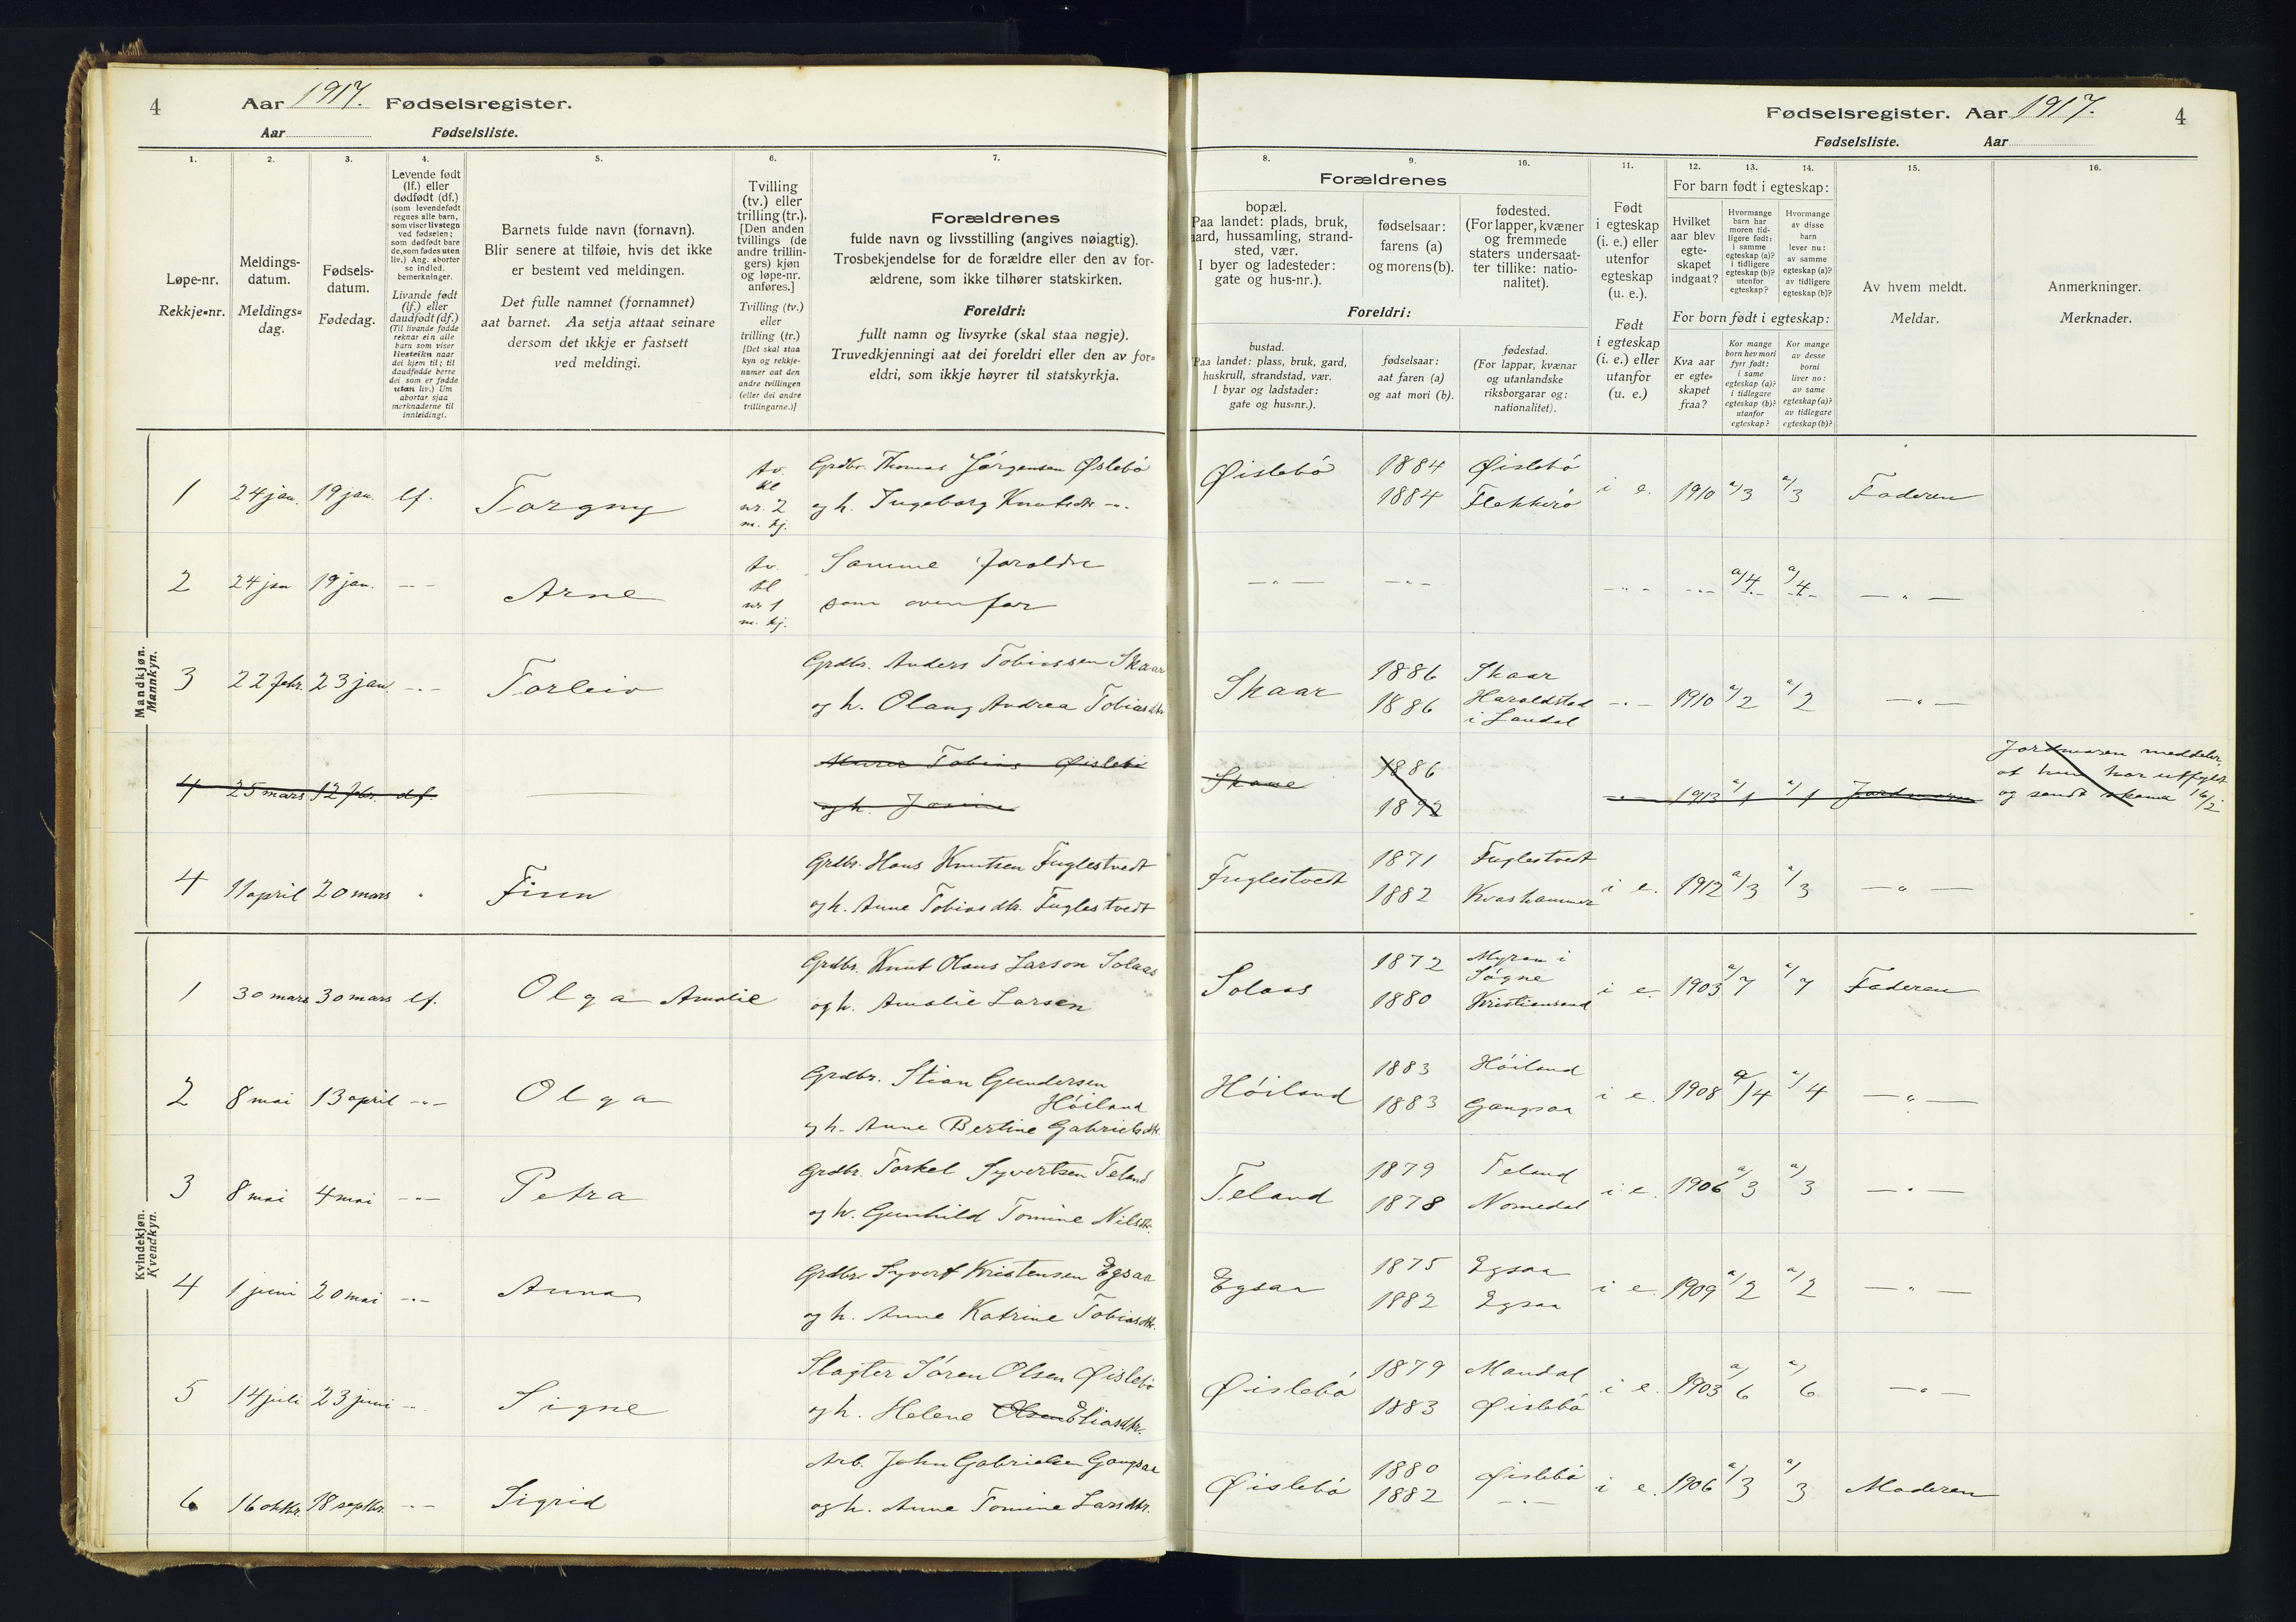 4 Aar 1917. Fødselsregister.
Aar Fødselsliste.
Fødselsregister. Aar 1917. 4
Fødselsliste. Aar
1. 2. 3. 4. 5. 6. 7. 8. 9. 10. 11. 12. 13. 14. 15. 16.
Løpe-nr.
Rekkje=nr.
Meldings-
datum.
Meldings=
dag.
Fødsels-
datum.
Fødedag.
Levende født
(lf.) eller
dødfødt (df.)
(som levendefødt
regnes alle barn,
som viser livstegn
ved fødselen;
som dødfødt bare
de, som fødes uten
liv.) Ang. aborter
se indled.
bemerkninger.
Livande født
(lf.) eller
daudfødt (df.)
(Til livande fødde
reknar ein alle
barn som viser
livsteikn naar
dei kjem til; til
daudfødde berre
dei som er fødde
utan liv.) Um
abortar sjaa
merknaderne til
innleidingi.
Barnets fulde navn (fornavn).
Blir senere at tilføie, hvis det ikke
er bestemt ved meldingen.
Det fulle namnet (fornamnet)
aat barnet. Aa setja attaat seinare
dersom det ikkje er fastsett
ved meldingi.
Tvilling
(tv.) eller
trilling (tr.).
[Den anden
tvillings (de
andre trillin-
gers) kjøn
og løpe-nr.
anføres.]
Tvilling (tv.)
eller
trilling (tr.)
[Det skal staa
kyn og rekkje-
numer aat den
andre tvillingen
(eller dei andre
trillingarne.)]
Forældrenes
fulde navn og livsstilling (angives nøiagtig).
Trosbekjendelse for de forældre eller den av for-
ældrene, som ikke tilhører statskirken.
Foreldri:
fullt namn og livsyrke (skal staa nøgje).
Truvedkjenningi aat dei foreldri eller den av for=
eldri, som ikkje høyrer til statskyrkja.
Forældrenes
bopæl.
Paa landet: plads, bruk,
gaard, hussamling, strand-
sted, vær.
I byer og ladesteder:
gate og hus-nr.).
fødselsaar:
farens (a)
og morens (b).
fødested.
(For lapper, kvæner
og fremmede
staters undersaat-
ter tillike: natio-
nalitet).
Foreldri:
bustad.
Paa landet: plass, bruk, gard,
huskrull, strandstad, vær.
I byar og ladstader:
gate og hus=nr.).
fødselsaar:
aat faren (a)
og aat mori (b).
fødestad.
(For lappar, kvænar
og utanlandske
riksborgarar og:
nationalitet).
Født
i egteskap
(i. e.) eller
utenfor
egteskap
(u. e.).
Født
i egteskap
(i. e.) eller
utanfor
(u. e.)
For barn født i egteskap:
Hvilket
aar blev
egte-
skapet
indgaat?
Hvormange
barn har
moren tid-
ligere født:
i samme
egteskap (a)?
i tidligere
egteskap (b)?
utenfor
egteskap?
Hvormange
av disse
barn
lever nu:
av samme
egteskap (a)?
av tidligere
egteskap (b)?
For born født i egteskap:
Kva aar
er egte=
skapet
fraa?
Kor mange
born hev mori
fyrr født:
i same
egteskap (a)?
i tidlegare
egteskap (b)?
utanfor
egteskap?
Kor mange
av desse
borni
liver no:
av same
egteskap (a)?
av tidlegare
egteskap (b)?
Av hvem meldt.
Meldar.
Anmerkninger.
Merknader.
Mandkjøn.
Mannkyn.
1 24 jan. 19 jan. lf. Torgny tv. kl nr. 2 m. kj. Grdbr. Thomas Jørgensen Øslebø Øislebö 1884 Øislebö
og h. Ingeborg Knutsdtr -"- 1884 Flekkerø i e. 1910 a/3 a/3 Faderen
2 24 jan 19 jan. -"- Arne tv. kl nr 1 m. kj. Samme foreldre -"- -"- -"- -"- a/4 a/4 -"-
som ovenfor
3 22 febr. 23 jan. -"- Torleiv Grdbr. Anders Tobiassen Skaar Skaar 1886 Skaar
og h. Olang Andrea Tobiasdtr 1886 Haraldstad i Laudal -"- 1910 a/2 a/2 -"-
4 25 mars 12 febr. df. Murer Tobias Øislebö 1886
og h. Josine 1892 -"- 1913 a/1 a/1 Jordmoren
Jordmoren meddeler,
at hun har utfyldt
og sendt skema 16/2
4 11 april 20 mars " Finn Grdbr. Hans Knutsen Fuglestvedt Fuglestvedt 1871 Fuglestvedt
og h. Anne Tobiasdtr. Fuglestvedt 1882 Kvashammer i e. 1912 a/3 a/3 -"-
Kvindekjøn.
Kvendkyn.
1 30 mars 30 mars lf. Olga Amalie Grdbr. Knut Olaus Larson Solaas Solaas 1872 Myran i Søgne
og h. Amalie Larsen 1880 Kristiansand i e. 1903 a/7 a/7 Faderen
2 8 mai 13 april -"- Olga Grdbr. Stian Gundersen Höiland Höiland 1883 Höiland
og h. Anne Bertine Gabrielsdtr. 1883 Gangsaa i e. 1908 a/4 a/4 -"-
3 8 mai 4 mai -"- Petra Grdbr. Torkel Syvertsen Teland Teland 1879 Teland
og h. Gunhild Tomine Nilsdtr. 1878 Nomedal i e. 1906 a/3 a/3 -"-
4 1 juni 20 mai -"- Anna Grdbr Syvert Kristensen Egsaa Egsaa 1875 Egsaa
og h. Anne Katrine Tobiasdtr. 1882 Egsaa i e. 1909 a/2 a/2 -"-
5 14 juli 23 juni -"- Signe Slagter Sören Olsen Øislebö Øislebö 1879 Mandal
og h. Helene Olsen Eliasdtr. 1883 Øislebö i e. 1903 a/6 a/6 -"-
6 16 oktbr. 18 septbr. -"- Sigrid Arb. John Gabrielsen Gangsaa Øislebö 1880 Øislebö
og h. Anne Tomine Larsdtr. 1882 -"- i e. 1906 a/3 a/3 Moderen